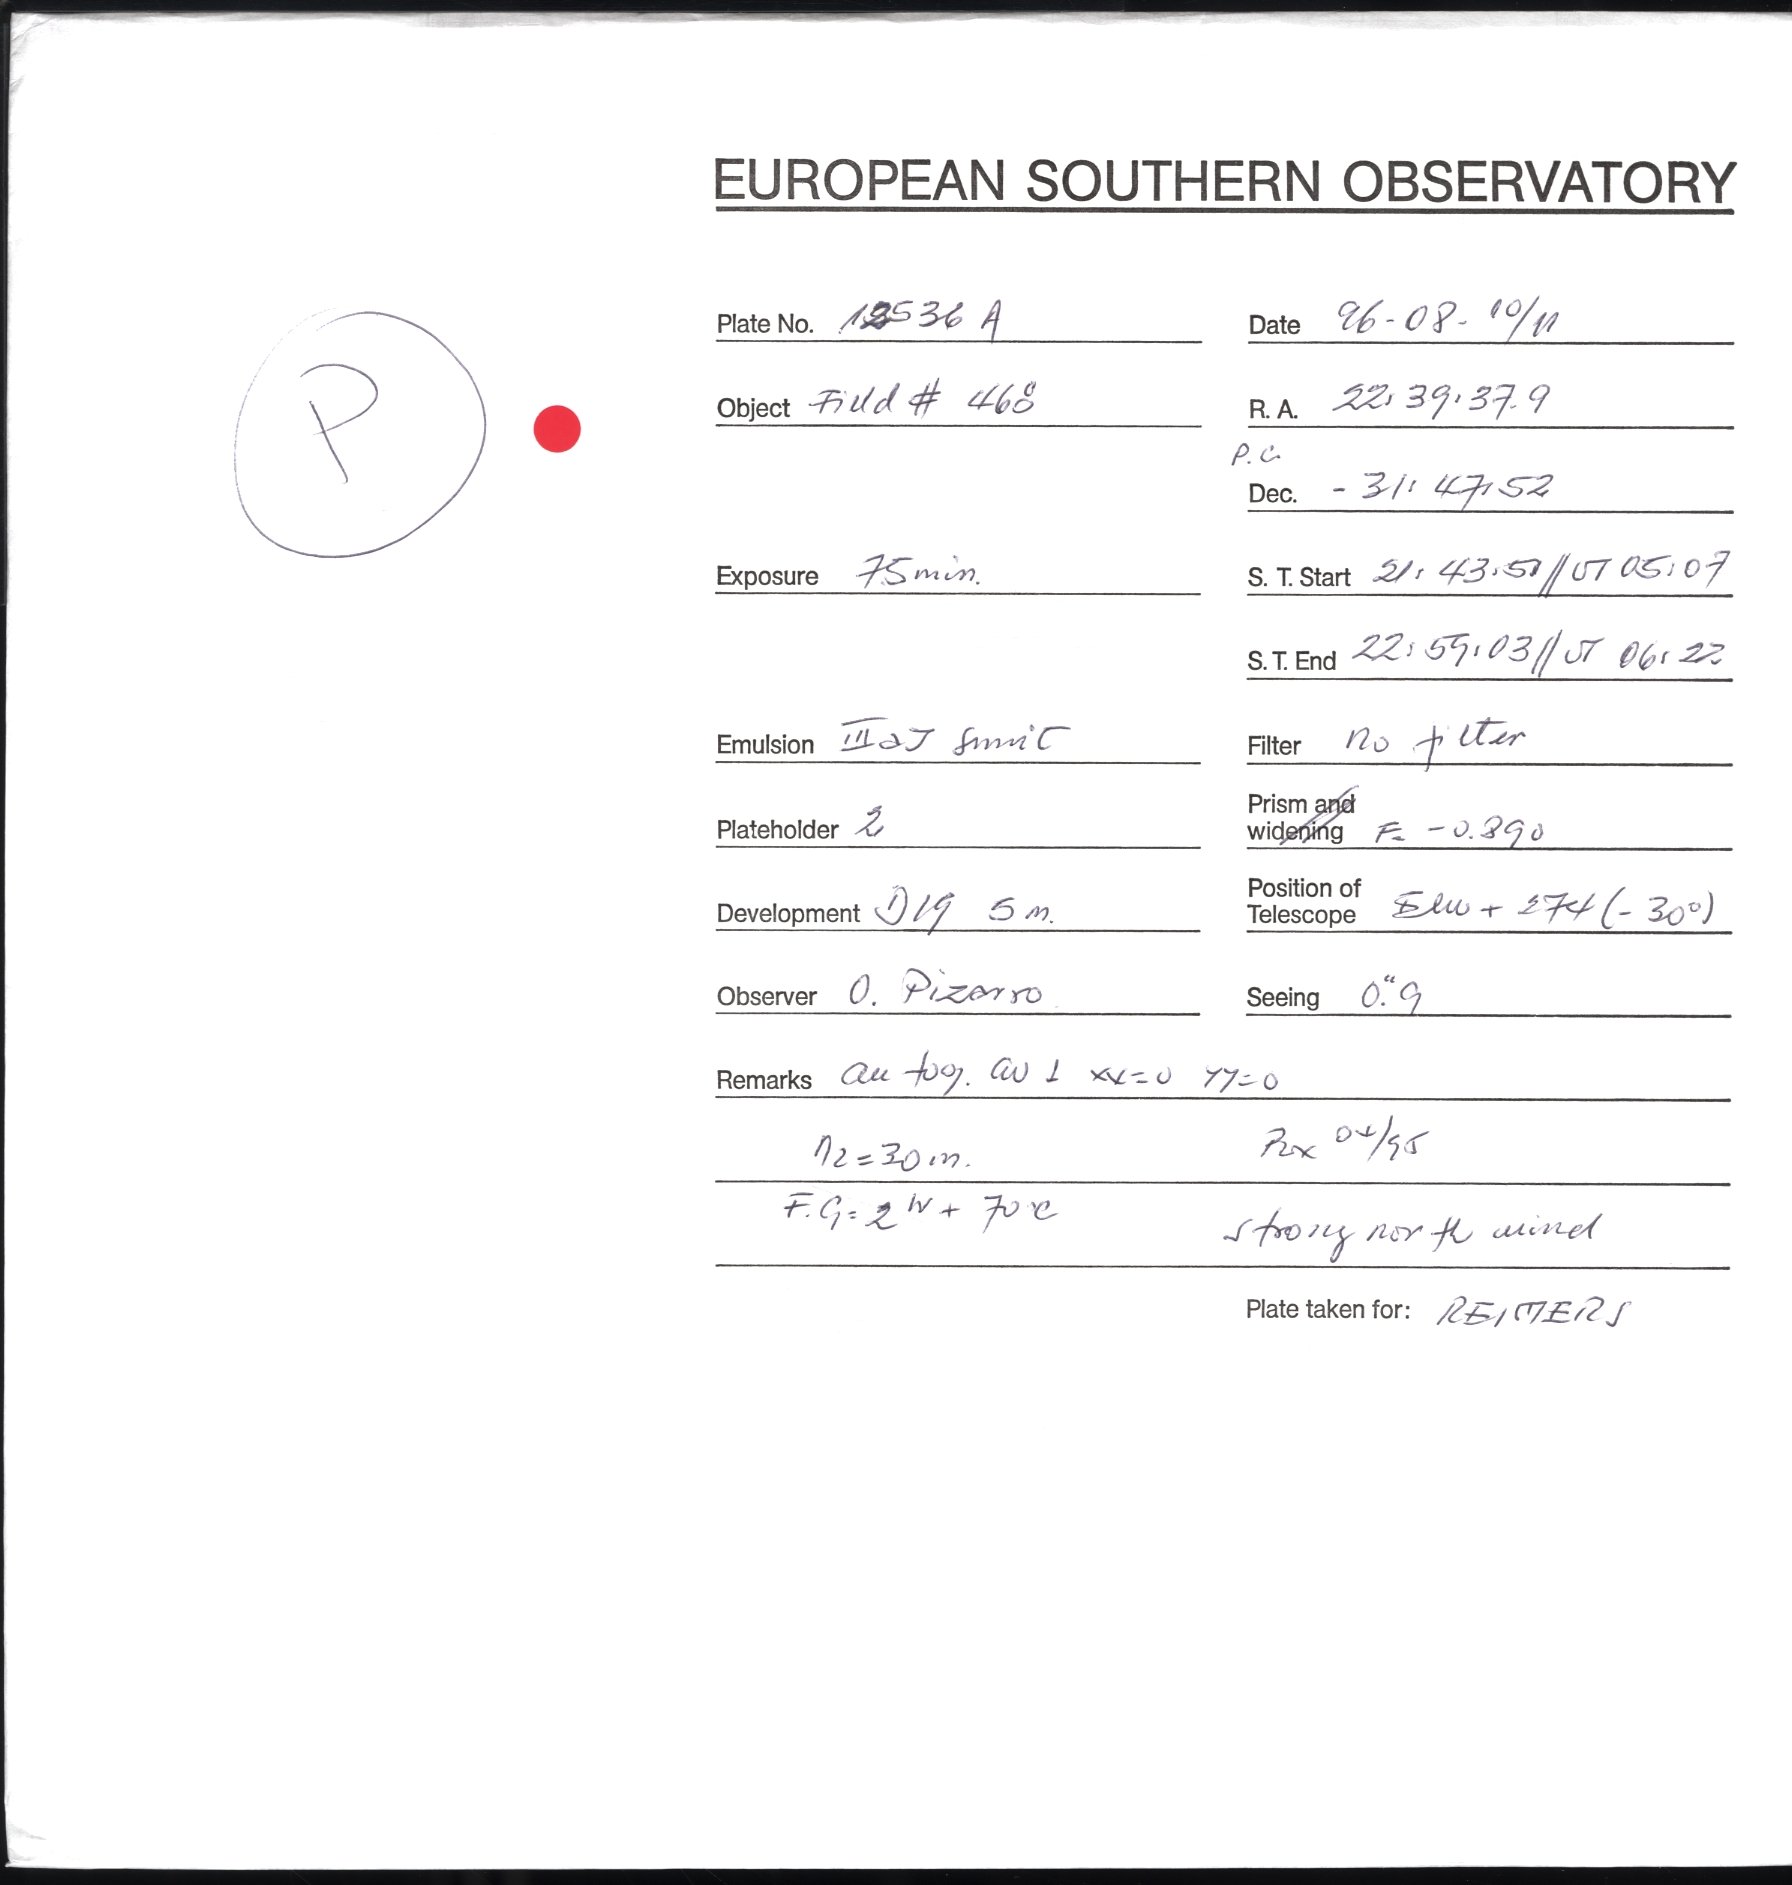 EUROPEAN SOUTHERN OBSERVATORY
P
Plate No. 12536 A
Date 96-08-10/11
Object Field # 468
R. A. 22:39:37.9
P.C.
Dec. - 31:47:52
Exposure 75 min.
S. T. Start 21:43:51//UT 05:07
S. T. End 22:59:03//UT 06:22
Emulsion IIIaJ
Filter no filter
Plateholder 2
Prism and
widening F= -0.890
Development D19 5 m.
Position of
Telescope + 274 (-30°)
Observer O. Pizarro
Seeing 0."9
Remarks autog. xx=0 yy=0
N2=30 m.
04/95
F.G= 2 + 70°C
strong north wind
Plate taken for: REIMERS